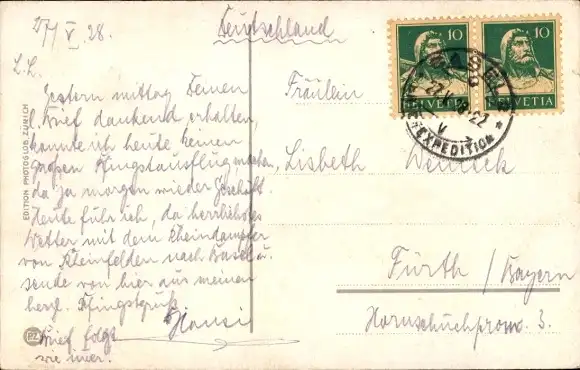 27/V.28.
L.L.
Gestern mittag Deinen
l. Brief dankend erhalten,
konnte ich heute keinen
großen Pfingstausflug machen,
da ja morgen wieder Geschäft.
Heute fuhr ich, da herrlichstes
Wetter mit dem Rheindampfer
von Rheinfelden nach Basel u.
sende von hier aus meinen
herzl. Pfingstgruß
Hansi
Brief folgt
wie immer.
EDITION PHOTOGLOB ZÜRICH
PZ
Deutschland
Fräulein
Lisbeth
Fürth / Bayern
Hornschuchprom. 3.
10
10
HELVETIA
HELVETIA
BASEL
27.V.28-22
V
BRIEFEXPEDITION